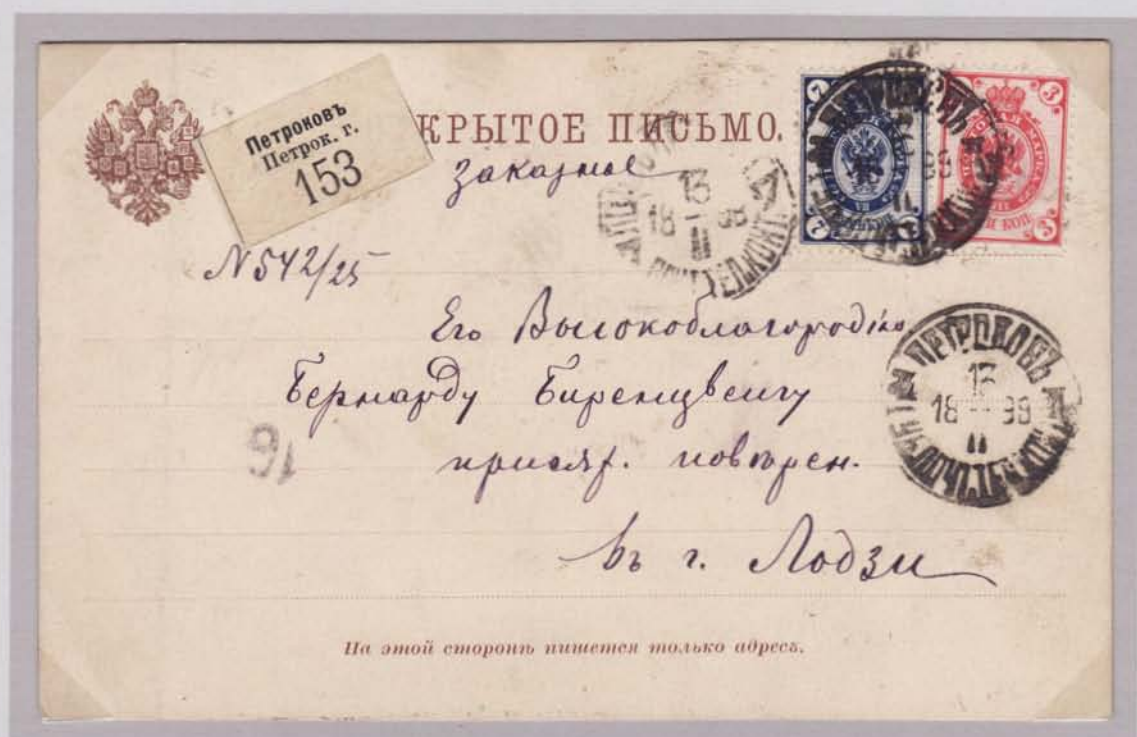 Петроковъ
Петрок. г.
153
КРЫТОЕ ПИСЬМО.
Заказное
13
18 98
II
7
7
3
3
N 542/25
Его Высокоблагородію
Бернарду Биренцвейгу
присяж. повѣрен.
въ г. Лодзи
ПЕТРОКОВЪ
13
18 98
II
16
На этой сторонѣ пишется только адресъ.